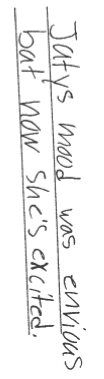 Jatys mood was envious
but now she's excited.